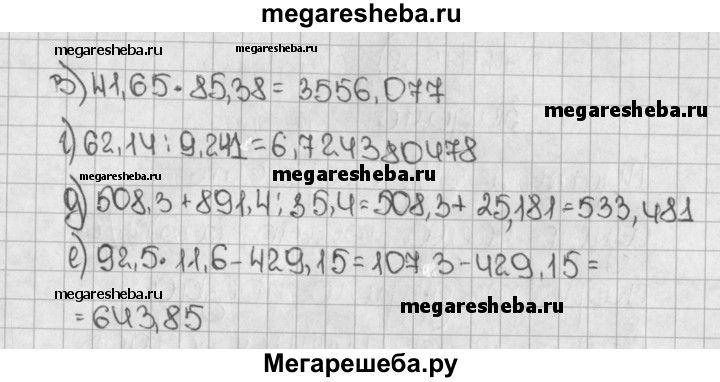 megaresheba.ru
megaresheba.ru megaresheba.ru
в) 41,65 · 85,38 = 3556,077
megaresheba.ru
г) 62,14 : 9,241 = 6,724380478
megaresheba.ru megaresheba.ru
д) 508,3 + 891,4 : 35,4 = 508,3 + 25,181 = 533,481
megaresheba.ru
е) 92,5 · 11,6 - 429,15 = 1073 - 429,15 =
megaresheba.ru megaresheba.ru
= 643,85
Мегарешеба.ру